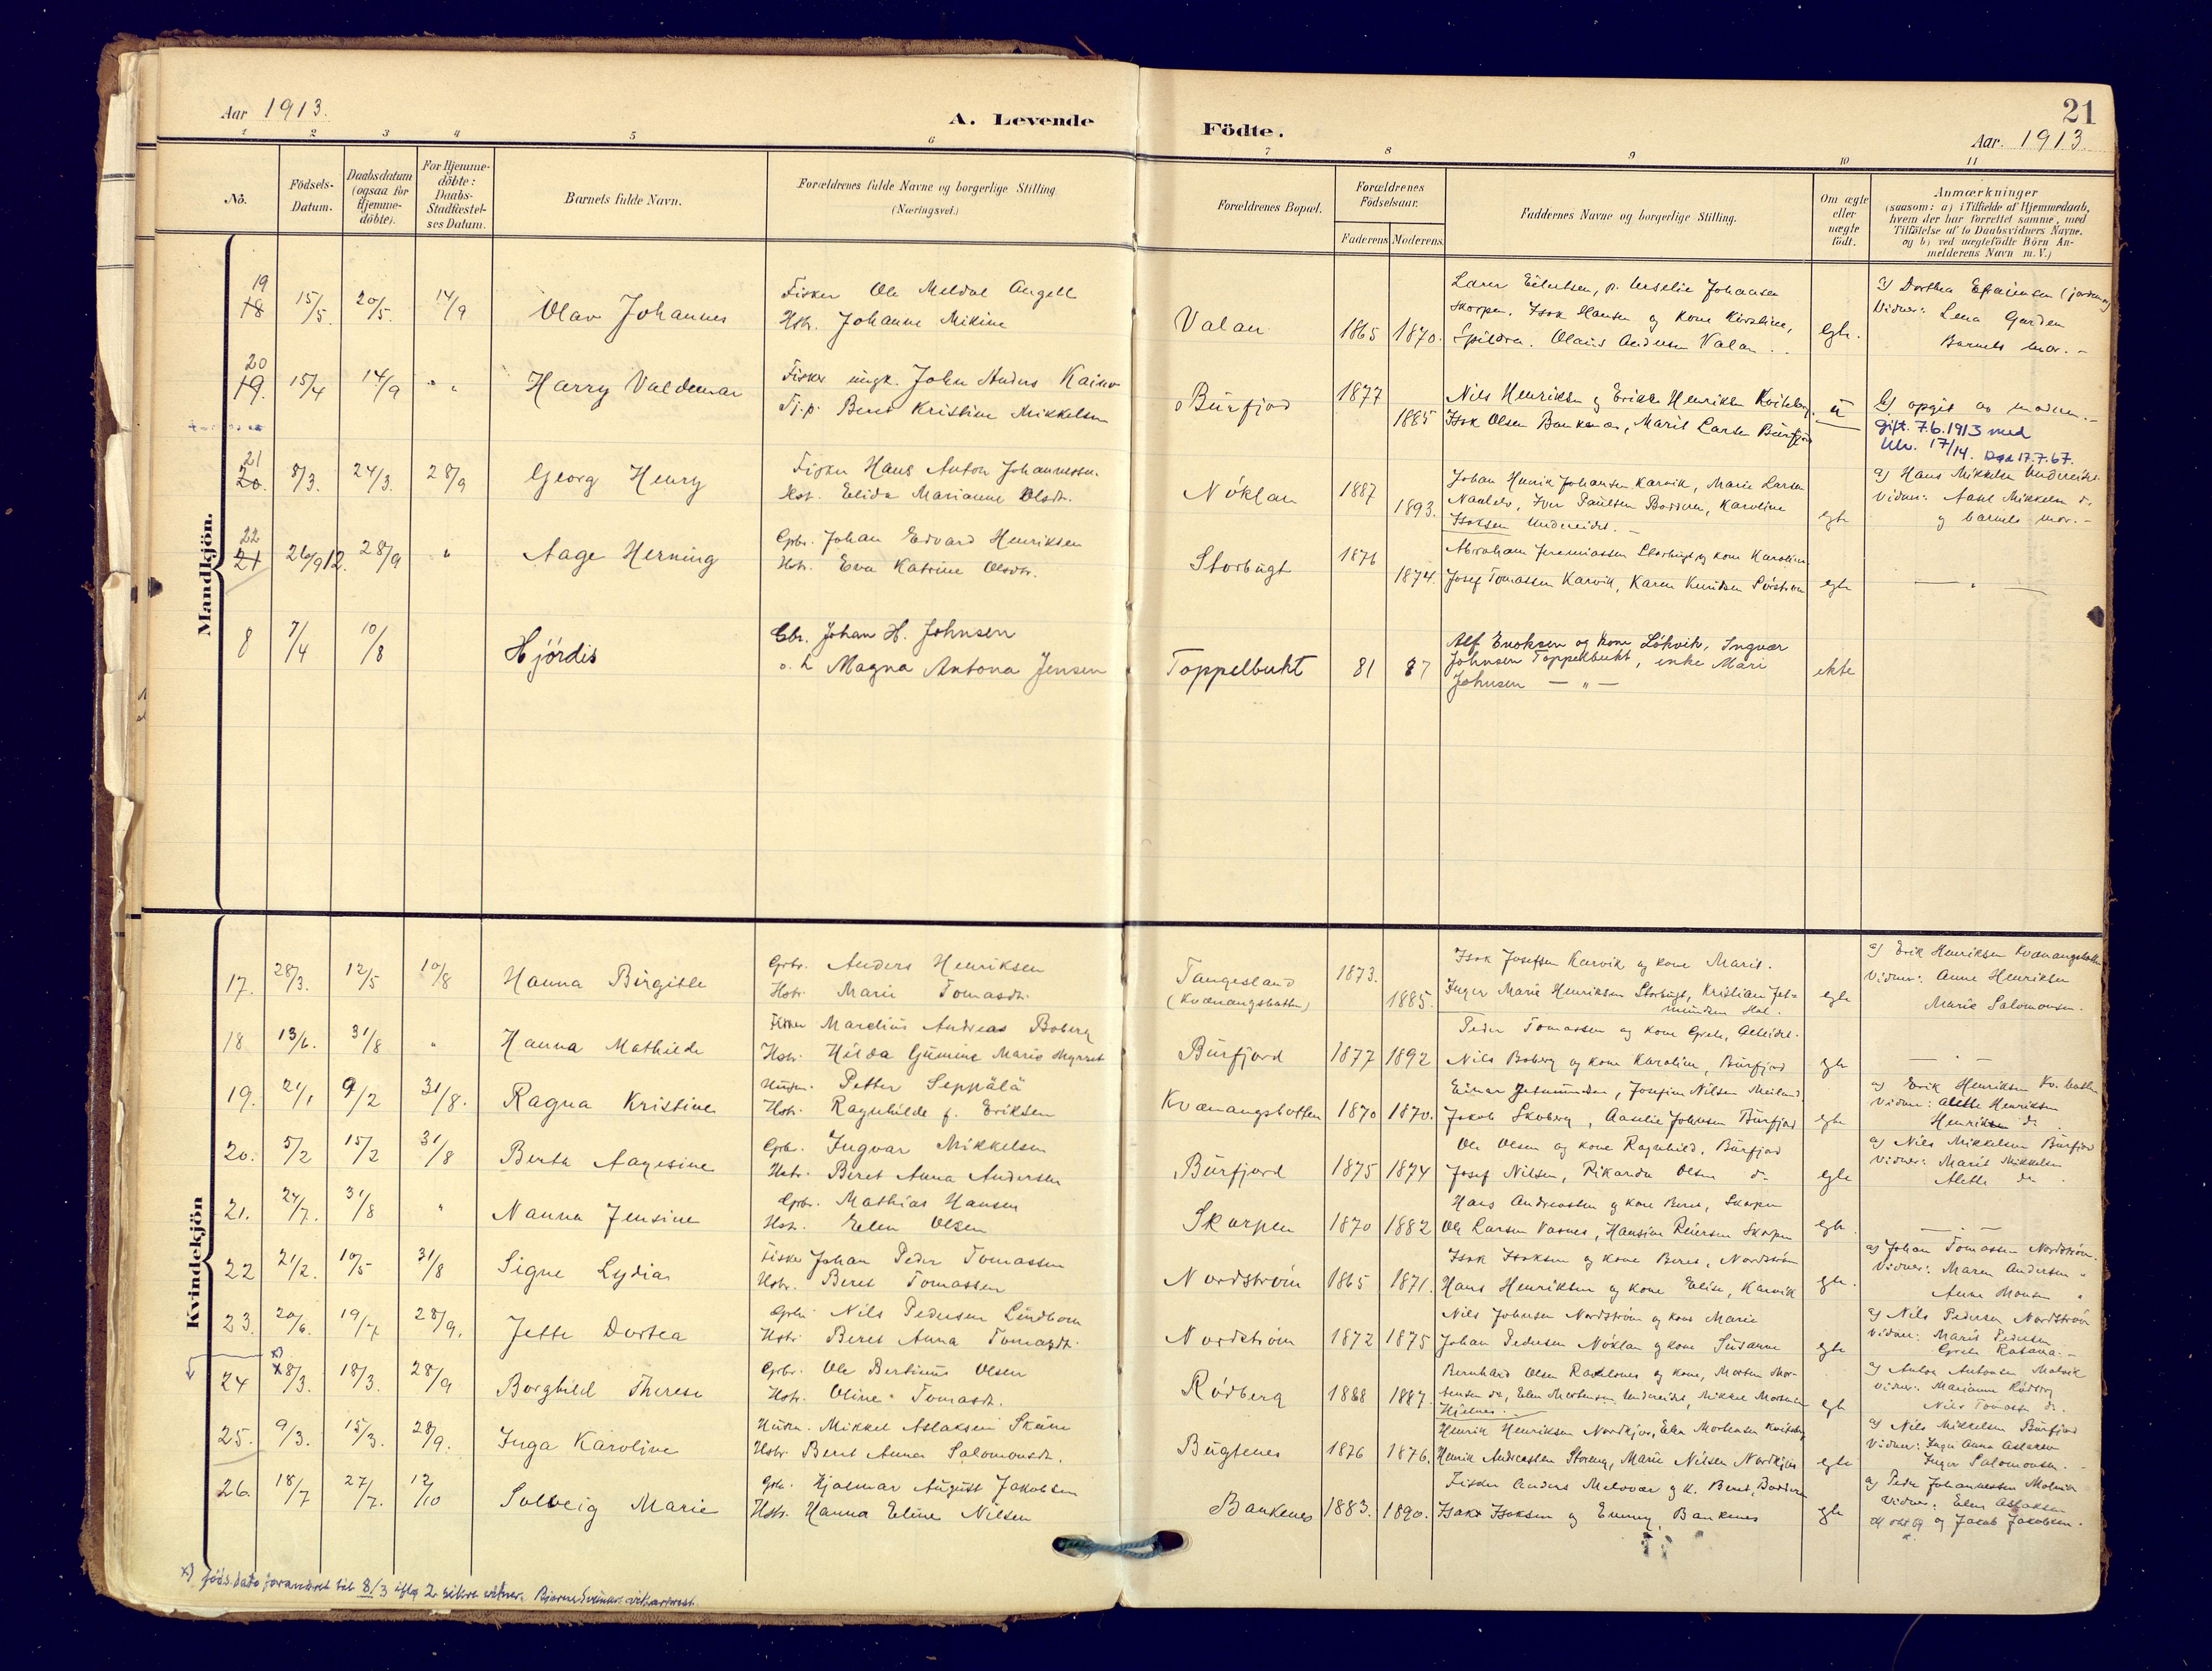 Aar 1913.
A. Levende
Födte.
21
Aar. 1913
1 2 3 4 5 6 7 8 9 10 11
Nö.
Födsels-
Datum.
Daabsdatum
(ogsaa for
Hjemme-
döbte).
For Hjemme-
döbte:
Daabs-
Stadfæstel-
ses Datum.
Barnets fulde Navn.
Forældrenes fulde Navne og borgerlige Stilling
(Næringsvei.)
Forældrenes Bopæl.
Forældrenes
Födselsaar.
Faderens Moderens
Faddernes Navne og borgerlige Stilling.
Om ægte
eller
uægte
födt.
Anmærkninger
(saasom: a) i Tilfælde af Hjemmedaab,
hvem der har forrettet samme, med
Tilföielse af to Daabsvidners Navne.
og b) ved uægtefödte Börn An-
melderens Navn m. V.)
Mandkjön.
19
18 15/5. 20/5. 14/9 Olav Johannes
Fisker Ole Meldal Angell
Hstr. Johanne Mikine
Valan 1865 1870.
Johansen
Skorpen, Isak Hansen og Kone Kirstine,
Spildra. Olaus Andersen Valan
egte.
a) Dorthea
Vidner: Lena Garden
Barnets mor. -
20
19. 15/4 14/9 " " Harry Valdemar
Fisker ungk. John Anders
Tj.p. Beret Kristine Mikkelsen
Burfjord 1877 1885
Nils Henriksen og Henriksen
Isak Olsen Bankenes, Marit Larsen Burfjord
u
b) opgit av moderen. -
Gift. 7.6.1913 med
17/14. Død 17.7.67.
21
20. 8/3. 24/3. 28/9 Georg Henry
Fisker Hans Anton Johannessen.
Hst. Elida Marianne Olsdt.
Nöklan 1887 1893.
Johan Henrik Johansen Karvik, Marie Larsen
Iver Paulsen Badderen, Karoline
Isaksen Undereidet. -
egte
a) Hans Mikkelsen Undereidet
Vidner: Mikkelsen do.
og barnets mor. -
22
21 26/9 12. 28/9 " Aage Herning
Gbr. Johan Edvard Henriksen
Hstr. Eva Katrine Olsdtr.
Storbugt 1876 1874.
Abraham Jeremiassen Storbugt og kone Karoline
Josef Tomassen Karvik, Karen Knudsen Sörström
egte
— " —
8 7/4 10/8 Hjördis
Gbr. Johan H. Johnsen
o. h Magna Antona Jensen
Toppelbukt 81 87
Alf Enoksen og kone Lökvik, Ingvar
Johnsen Toppelbukt, enke Mari
Johnsen — " —
ekte
Kvindekjön
17. 28/3. 12/5 10/8 Hanna Birgitte
Gbr. Anders Henriksen
Hstr. Marie Tomasdt.
Tangesland
(Kvænangsbotten)
1873. 1885.
Isak Josefsen Karvik og kone Marit.
Inger Marie Henriksen Storbugt, Kristian Jet-
mundsen Hal.
egte
a) Erik Henriksen Kvænangsbotten
Vidner: Anne Henriksen
Marie Salomonsen.
18 13/6. 31/8 " Hanna Mathilde
Fisker Marelius Andreas Boberg
Hstr. Hilda Marie
Burfjord 1877 1892
Peder Tomassen og kone Grete, Alteidet.
Nils Boberg og kone Karoline, Burfjord
egte
— " —
19. 21/1 9/2 31/8. Ragna Kristine
Petter Seppälä
Hstr. Ragnhilde f. Eriksen
Kvænangsbotten 1870 1870.
Einar Jetmundsen, Josefine Nilsen Meiland
Jakob Skoberg, Aaselie Johnsen Burfjord
egte
a) Erik Henriksen Kv. botten
Vidner: Alette Henriksen
Henriksen do.
20. 5/2 15/2 31/8 Berta Aagesine
Gbr. Ingvar Mikkelsen
Hstr. Beret Anna Andersen
Burfjord 1875 1874
Ole Olsen og kone Ragnhild, Burfjord
Josef Nilsen, Rikarda Olsen do
egte
a) Nils Mikkelsen Burfjord
Vidner: Marit Mikkelsen
Alette do.
21. 24/7. 31/8 " Nanna Jensine
Gbr. Mathias Hansen
Hstr. Elen Olsen
Skorpen 1870 1882
Hans Andreassen og kone Beret, Skorpen
Ole Larsen Vasnes, Hansine Reiersen Skorpen
egte
— " —
22 21/2. 10/5 31/8 Signe Lydia
Fisker Johan Peder Tomassen
Hstr. Beret Tomassen
Nordström 1865 1871.
Isak Isaksen og kone Beret, Nordström
Hans Henriksen og kone Elise, Karvik
egte.
a) Johan Tomassen Nordström.
Vidner: Maren Andersen "
Anne Monsen "
23. 20/6. 19/7 28/9. Jette Dortea
Gbr. Nils Pedersen Lindbom
Hstr. Beret Anna Tomasdt.
Nordström 1872 1875
Nils Johnsen Nordström og kone Marie
Johan Pedersen Nöklan og kone Susanne
egte
a) Nils Pedersen Nordström
Vidner: Marit Pedersen
Grete -
x)
24 8/3. 18/3. 28/9 Borghild Therese
Gbr. Ole Bertinus Olsen
Hstr. Oline Tomasdt.
Rödberg 1888 1887.
Bernhard Olsen og kone, Morten Mor-
tensen do, Elen Mortensen Undereidet, Mikkel Mortensen
Hjelnes.
egte
a) Anton Antonsen
Vidner: Marianne Rödberg
Nils Tomassen do.
25. 9/3. 15/3. 28/9. Inga Karoline
Mikkel Aslaksen
Hstr. Beret Anna Salomonsdt.
Bugtenes 1876 1876.
Henrik Henriksen Nordkjos, Elen Mortensen
Henrik Andreassen Storeng, Marie Nilsen Nordkjos
egte
a) Nils Mikkelsen Burfjord
Vidner: Inga Anna Aslaksen
Inger Salomonsen.
26. 18/7 27/7. 12/10 Solveig Marie
Gbr. Hjalmar August Jakobsen
Hstr. Hanna Eline Nilsen
Bankenes 1883. 1890.
Fisker Anders og k. Beret, Badderen
Isak Isaksen og Emmy, Bankenes
egte
a) Peder Johannessen
Vidner: Elen Aslaksen
og Jakob Jakobsen.
x) föds.dato forandret til 8/3 ifölg 2 sikre vitner.